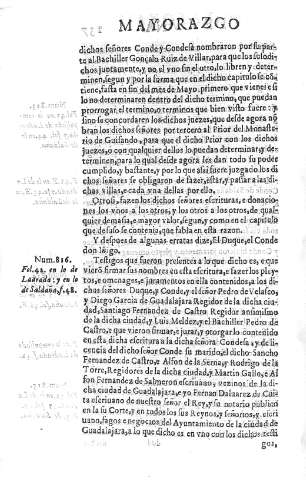 MAYORAZGO
dichos señores Conde y Condesa nombraron por su par-
te al Bachiller Gonçalo Ruiz de Villar, para que los susodi-
chos juntamente, y no el vno sin el otro, lo libren y deter-
minen, segun y por la forma que en el dicho capitulo se cõ-
tiene, fasta en fin del mes de Mayo, primero que viene: e si
lo no determinaren dentro del dicho termino, que puedan
prorrogar el termino, y terminos que bien visto fuere: y
sino se concordaren los dichos juezes, que desde agora nõ
bran los dichos señores por tercero al Prior del Monaste-
rio de Guisando, para que el dicho Prior con los dichos
juezes, o con qualquier dellos lo puedan determinar, y de-
terminen, para lo qual desde agora les dan todo su poder
cumplido, y bastante, y por lo que assi fuere juzgado los di-
chos señores se obligaron de fazer, estar, y passar a las di-
chas villas, e cada vna dellas por ello.
Otrosi, fazen los dichos señores escrituras, e donacio-
nes los vnos a los otros, y los otros a los otros, de qual-
quier demasia, e mayor valor, segun, y como en el capitu-
lo que desto se contenia, que fabla en esta razon.
Y despues de algunas erratas dize, El Duque, el Conde
don Iñigo.
Num. 816.
Fol. 42. en lo de
Laurada: y en lo
de Saldaña, f. 48.
Testigos que fueron presentes a lo que dicho es, e que
vieron firmar sus nombres en esta escritura, e fazer los pley-
tos, e omenages, e juramentos en ella contenidos, a los di-
chos señores Duque, e Conde, el señor Pedro de Velasco,
y Diego Garcia de Guadalajara Regidor de la dicha ciu-
dad, Santiago Fernandez de Castro Regidor ansimismo
de la dicha ciudad, y Luis Meldez, y el Bachiller Pedro de
Castro, e que vieron firmar, e jurar, y otorgar lo contenido
en esta dicha escritura a la dicha señora Condesa, y de li-
cencia del dicho señor Conde su marido, el dicho Sancho
Fernandez de Castro, e Alfon de la Serna, y Rodrigo de la
Torre, Regidores de la dicha ciudad, y Martin Gallo, e Al
fon Fernandez de Salmeron escriuano, vezinos de la di-
cha ciudad de Guadalajara, e yo Fernan Daluarez de Cue
escriuano de nuestro señor el Rey, y su notario publico
en la su Corte, y en todos los sus Reynos, y señorios, y escri-
uano, fagos e negocios del Ayuntamiento de la ciudad de
Guadalajara, a lo que dicho es en vno con los dichos testi-
gos,